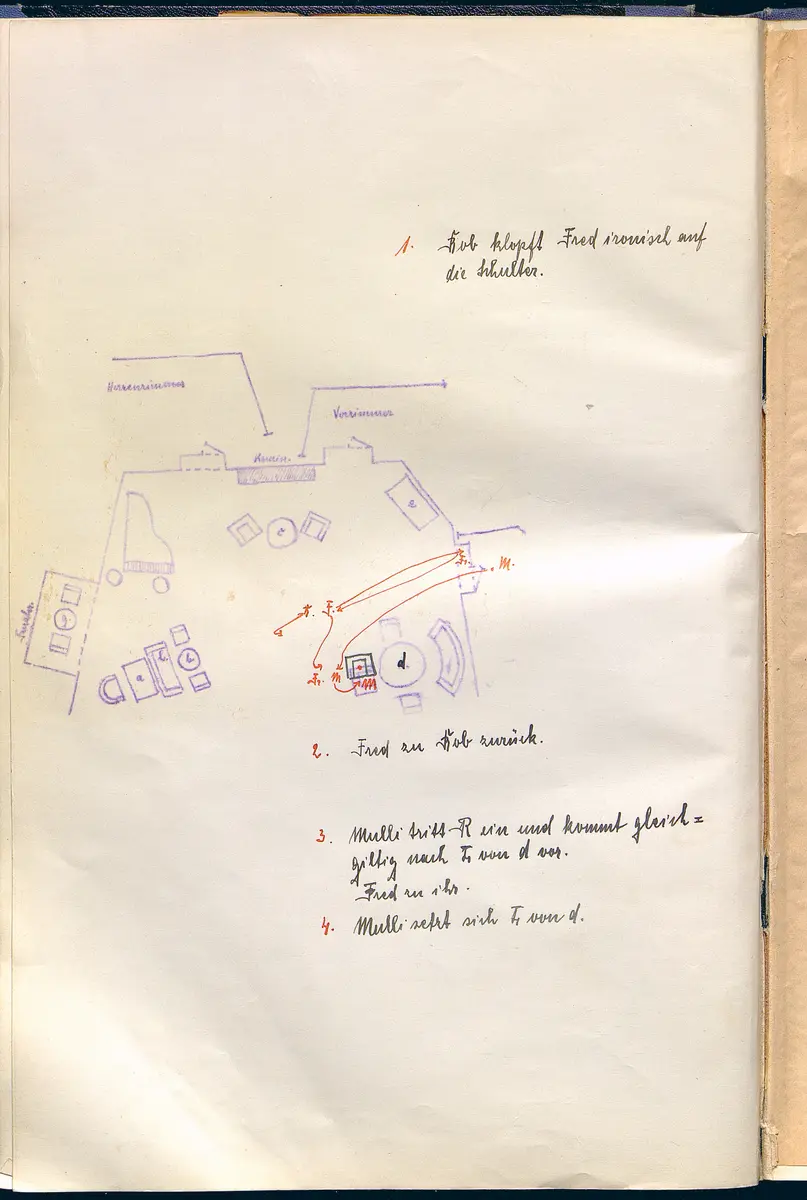 1. Kob klopft Fred ironisch auf
die Schulter.
Herrenzimmer
Vorzimmer
Kamin.
e
c
Fr.
M.
K. F.
a
b
d
Fr. M
M
2. Fred zu Kob zurück.
3. Mulli tritt R ein und kommt gleich=
giltig nach L von d vor.
Fred zu ihr.
4. Mulli setzt sich L von d.